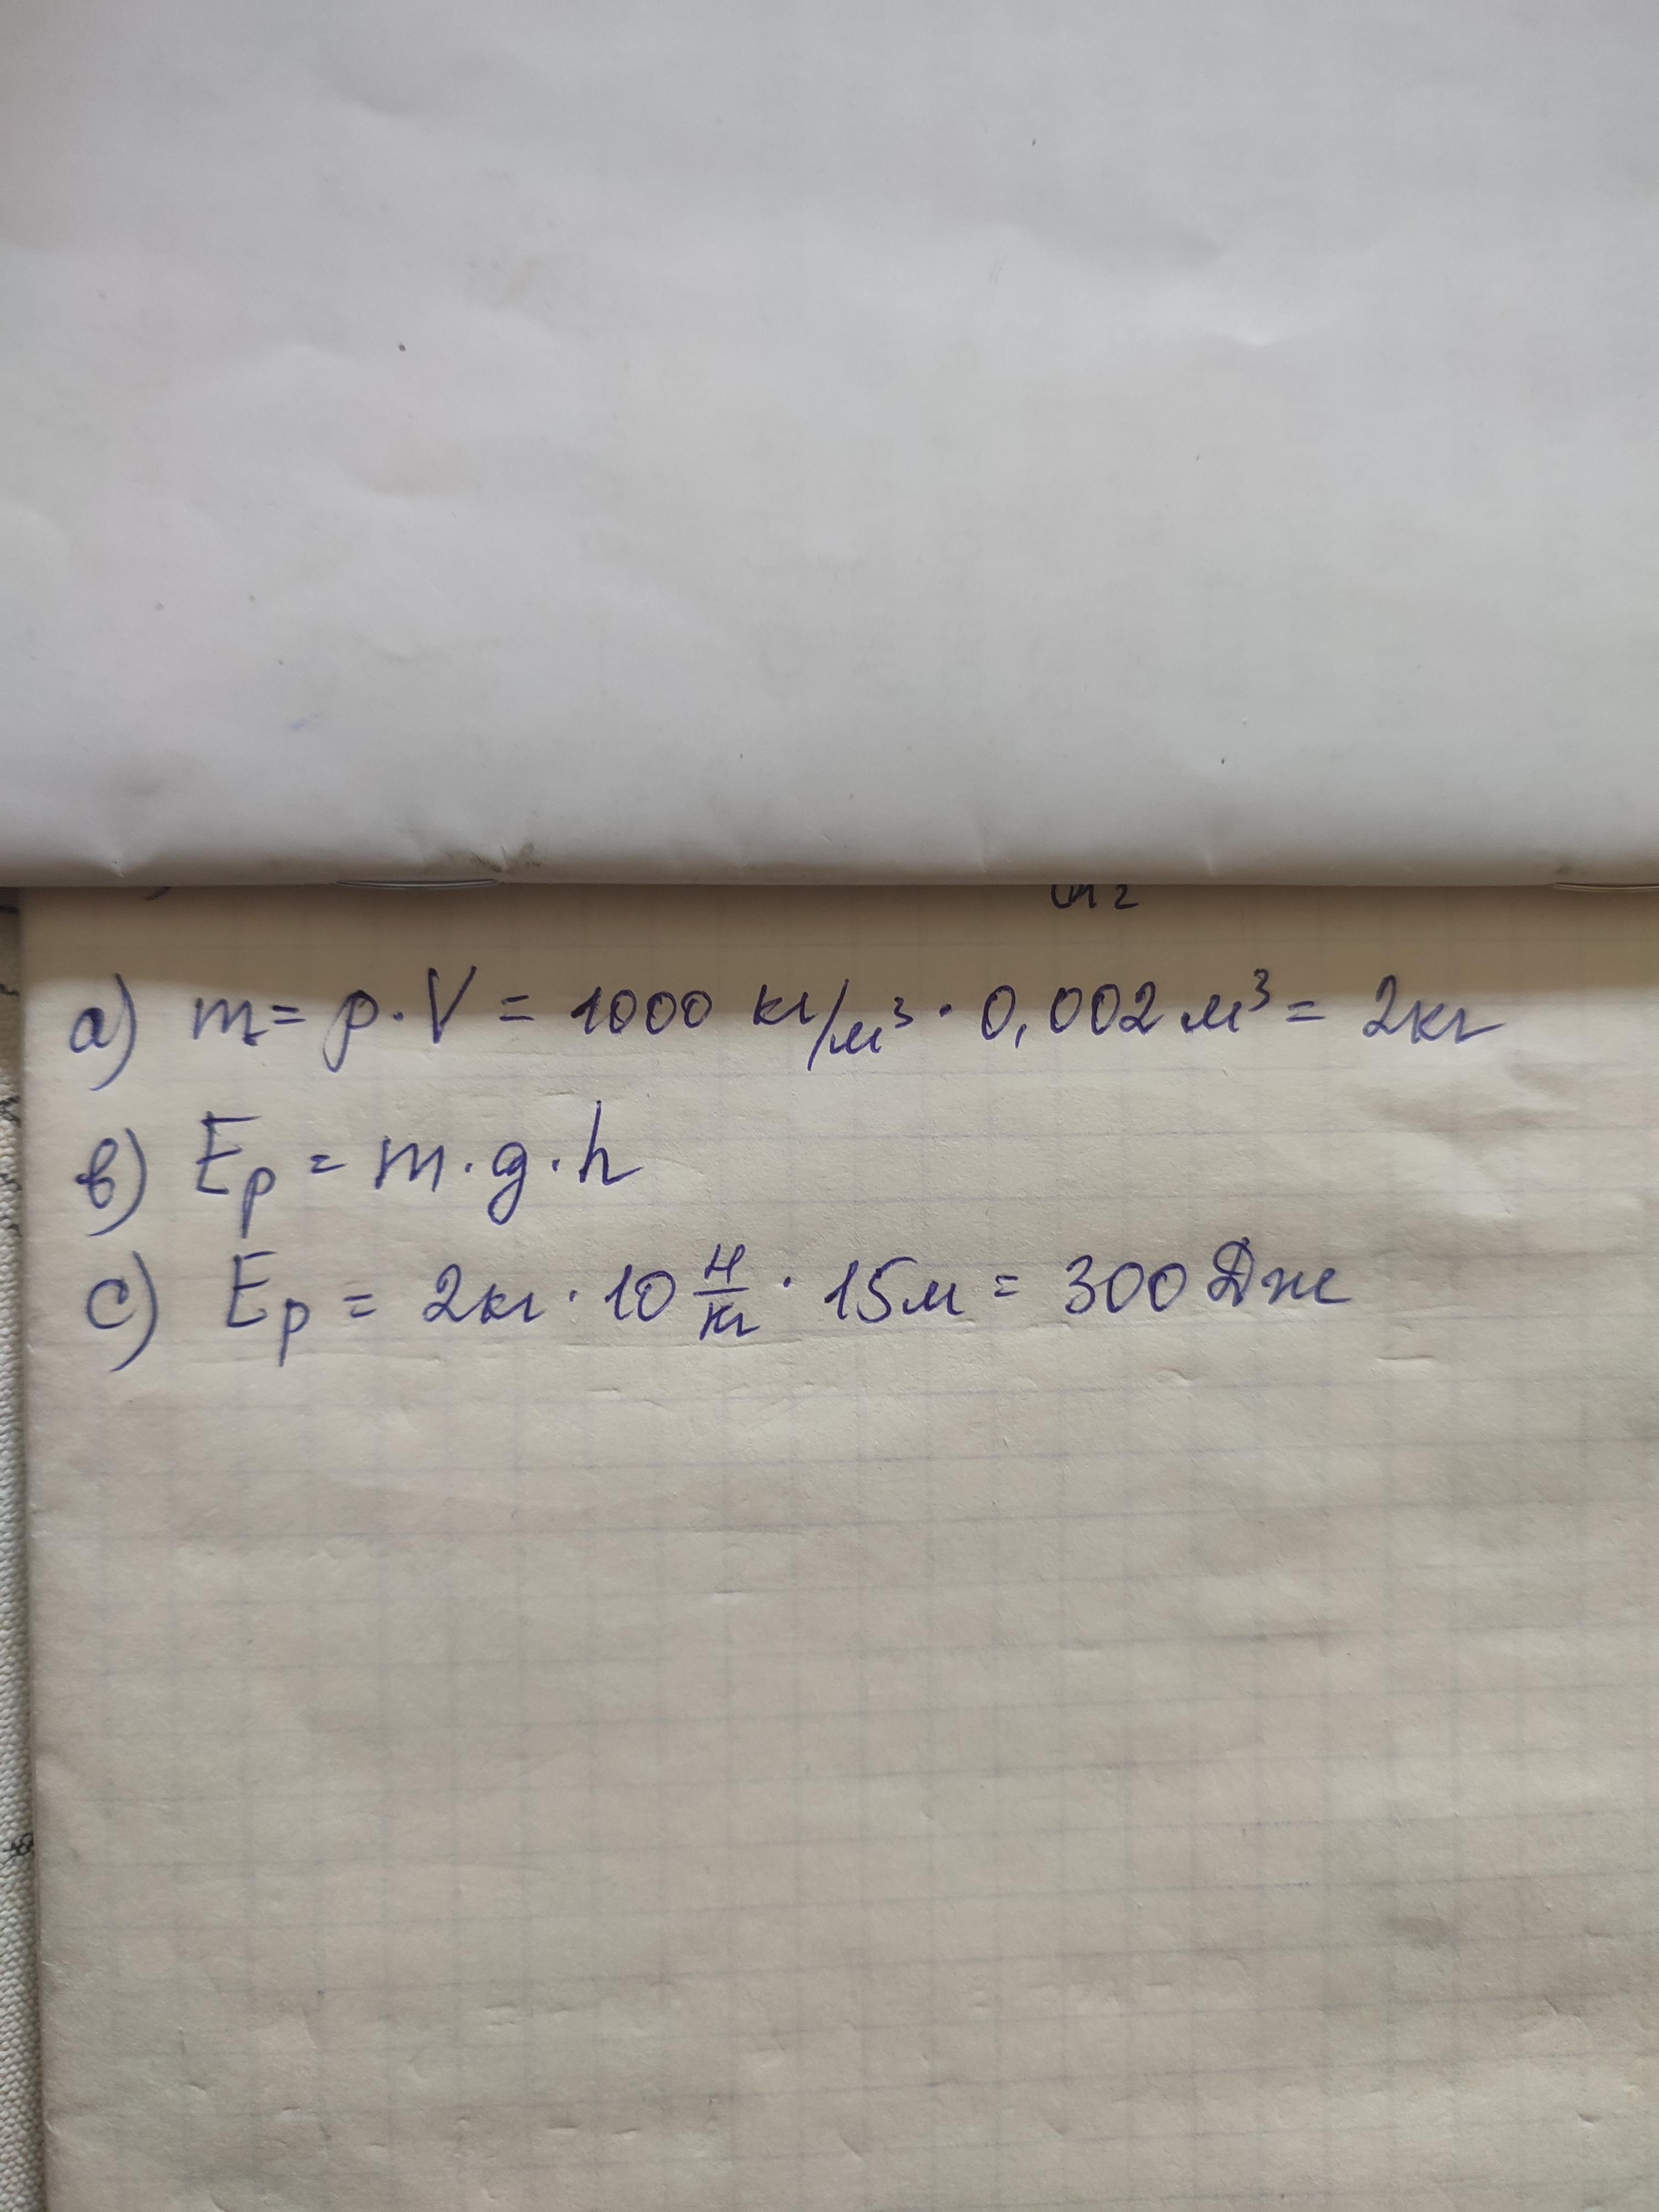 a) m = ρ · V = 1000 кг/м³ · 0,002 м³ = 2кг
b) Eₚ = m · g · h
c) Eₚ = 2кг · 10 Н/кг · 15м = 300 Дж